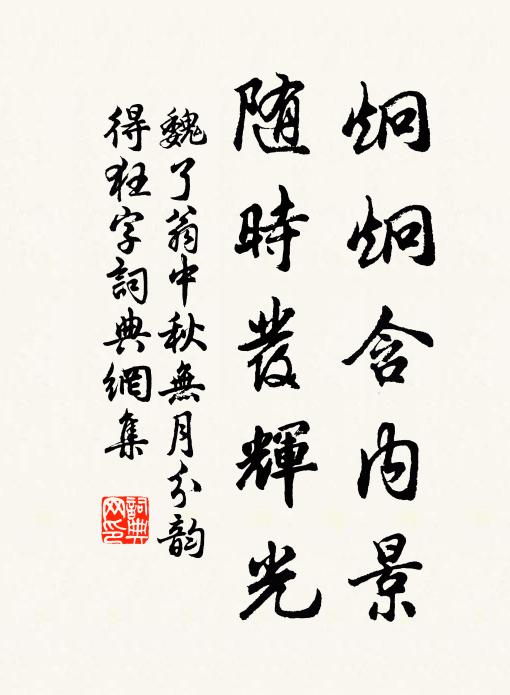 炯炯含内景
随時發輝光
魏了翁中秋無月分韵
得狂字詞典網集
詞典網印